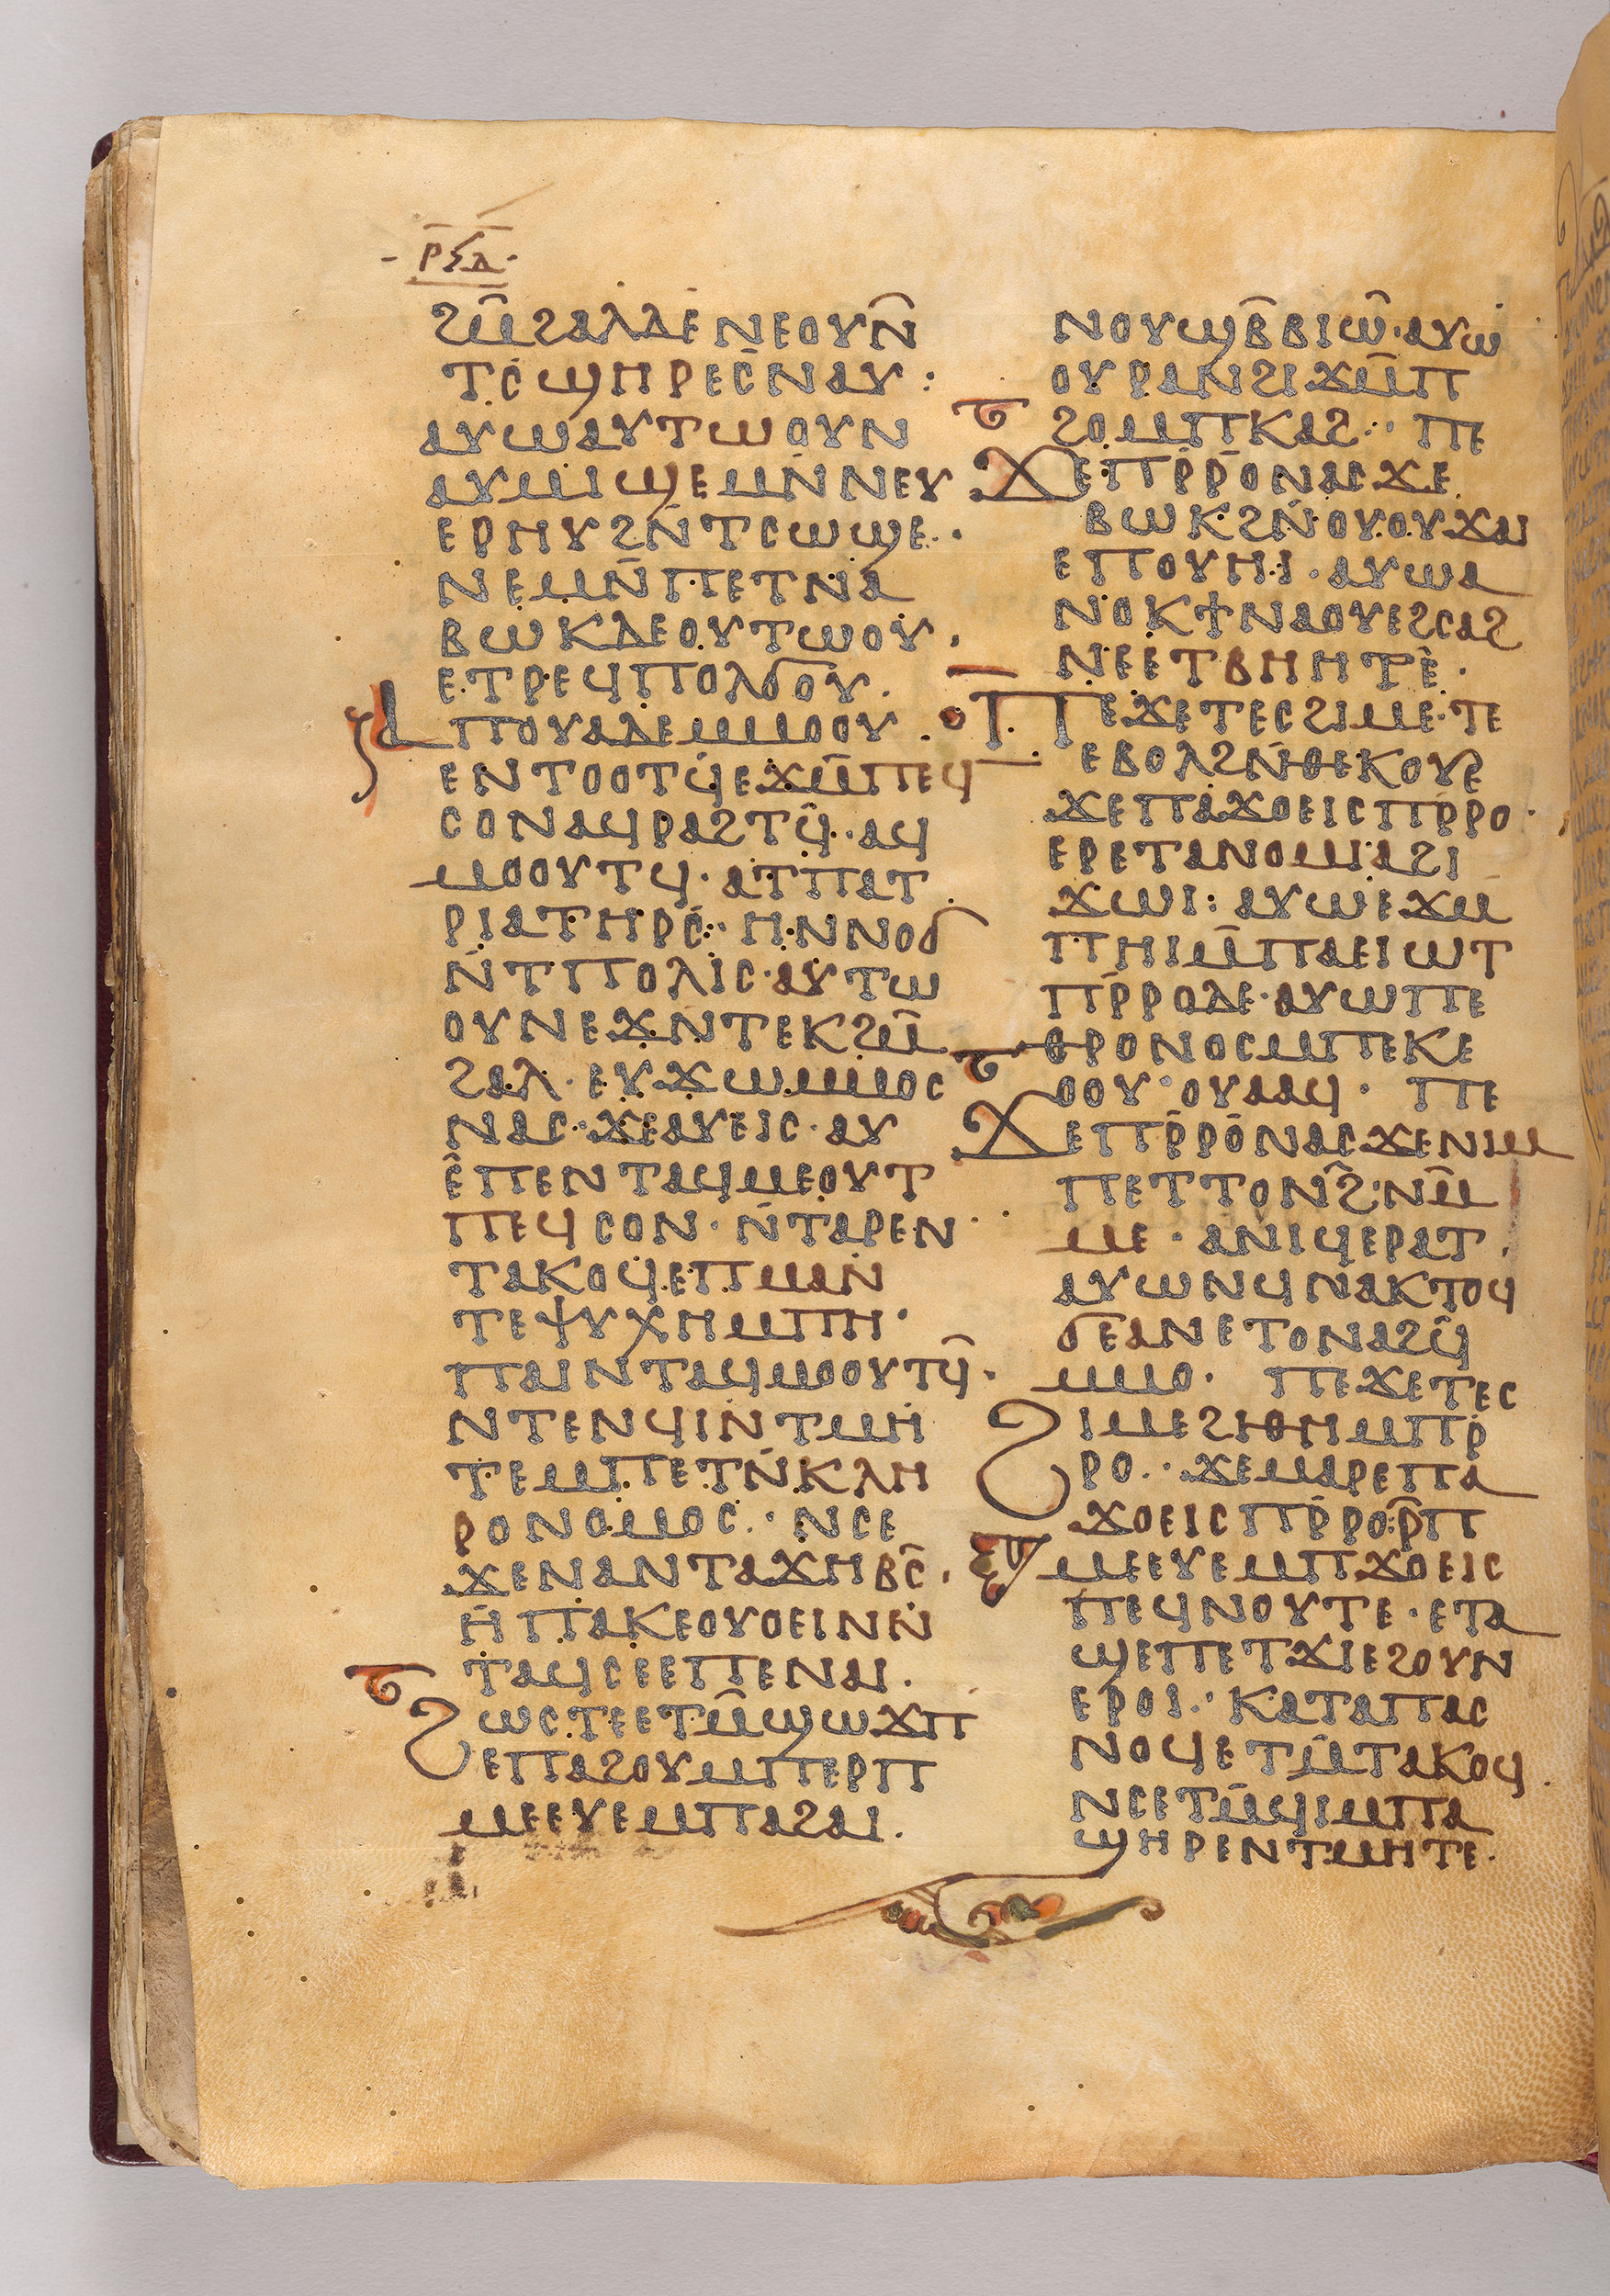 ⲣⲝⲇ
ϩⲙ̄ϩⲁⲗⲇⲉⲛⲉⲟⲩⲛ̄
ⲧⲥ̄ϣⲏⲣⲉⲥ̄ⲛⲁⲩ:
ⲁⲩⲱⲁⲩⲧⲱⲟⲩⲛ
ⲁⲩⲙⲓϣⲉⲙⲛ̄ⲛⲉⲩ
ⲉⲣⲏⲩϩⲛ̄ⲧⲥⲱϣⲉ·
ⲛⲉⲙⲛ̄ⲡⲉⲧⲛⲁ
ⲃⲱⲕⲇⲉⲟⲩⲧⲱⲟⲩ·
ⲉⲧⲣⲉϥⲡⲟⲗϭⲟⲩ·
ⲁⲡⲟⲩⲁⲇⲉⲙⲙⲟⲟⲩ·
ⲉⲛⲧⲟⲟⲧϥ̄ⲉϫⲙ̄ⲡⲉϥ
ⲥⲟⲛⲁϥⲣⲁϩⲧϥ̄·ⲁϥ
ⲙⲟⲟⲩⲧϥ·ⲁⲧⲡⲁⲧ
ⲣⲓⲁⲧⲏⲣⲥ̄·ⲏⲛⲛⲟϭ
ⲛ̄ⲧⲡⲟⲗⲓⲥ·ⲁⲩⲧⲱ
ⲟⲩⲛⲉϫⲛⲧⲉⲕϩⲙ̄
ϩⲁⲗ·ⲉⲩϫⲱⲙⲙⲟⲥ
ⲛⲁⲥ·ϫⲉⲁⲩⲉⲓⲥ·ⲁⲩ
ⲉ̂ⲡⲉⲛⲧⲁϥⲙⲉⲟⲩⲧ
ⲡⲉϥⲥⲟⲛ·ⲛ̄ⲧⲁⲣⲉⲛ
ⲧⲁⲕⲟϥⲉⲡⲙⲁⲛ̄
ⲧⲉⲯⲩⲭⲏⲙⲡⲏ·
ⲡⲁⲓⲛⲧⲁϥⲙⲟⲟⲩⲧϥ̄·
ⲛⲧⲉⲛϥⲓⲛⲧⲙⲏ
ⲧⲉⲙⲡⲉⲧⲛ̄ⲕⲗⲏ
ⲣⲟⲛⲟⲙⲟⲥ·ⲛⲥⲉ
ϫⲉⲛⲁⲛⲧⲁϫⲏⲃⲥ̄·
ⲏⲡⲁⲕⲉⲟⲩⲟⲉⲓⲛⲛ̄
ⲧⲁϥⲥⲉⲉⲡⲉⲛⲁⲓ·
ϩⲱⲥⲧⲉⲉⲧⲙ̄ϣⲱϫⲡ
ⲉⲡⲁϩⲟⲩⲙⲡⲉⲣⲡ
ⲙⲉⲉⲩⲉⲙⲡⲁϩⲁⲓ·
ⲛⲟⲩϣⲃ̄ⲃⲓⲱ̂·ⲁⲩⲱ
ⲟⲩⲣⲁⲛϩⲓϫⲙ̄ⲡ
ϩⲟⲙⲡⲕⲁϩ·ⲡⲉ
ϫⲉⲡⲣ̄ⲣⲟⲛⲁⲥϫⲉ
ⲃⲱⲕϩⲛ̄ⲟⲩⲟⲩϫⲁⲓ
ⲉⲡⲟⲩⲏⲓ·ⲁⲩⲱⲁ
ⲛⲟⲕϯⲛⲁⲟⲩⲉϩⲥⲁϩ
ⲛⲉⲉⲧⲃⲏⲏⲧⲉ̀·
ⲡⲉϫⲉⲧⲉⲥϩⲓⲙⲉ·ⲧⲉ
ⲉⲃⲟⲗϩⲛ̄ⲑⲉⲕⲟⲩⲉ
ϫⲉⲡⲁϫⲟⲉⲓⲥⲡⲣ̄ⲣⲟ·
ⲉⲣⲉⲧⲁⲛⲟⲙⲓⲁϩⲓ
ϫⲱⲓ:ⲁⲩⲱⲉϫⲙ
ⲡⲏⲓⲙ̄ⲡⲁⲉⲓⲱⲧ
ⲡⲣ̄ⲣⲟⲇⲉ·ⲁⲩⲱⲡⲉ
ⲑⲣⲟⲛⲟⲥⲙⲡⲉⲕⲉ
ⲟⲟⲩ·ⲟⲩⲁⲁϥ·ⲡⲉ
ϫⲉⲡⲣ̄ⲣⲟⲛⲁⲥϫⲉⲛⲓⲙ
ⲡⲉⲧⲧⲟⲛϩ̄·ⲛⲙ̄
ⲙⲉ·ⲁⲛⲓϥⲉⲣⲁⲧ·
ⲁⲩⲱⲛϥⲛⲁⲕⲧⲟϥ
ϭⲉⲁⲛⲉⲧⲟⲛⲁϩϥ̄
ⲙⲙⲟ·ⲡⲉϫⲉⲧⲉⲥ
ϩⲓⲙⲉϩⲓⲑⲏⲙⲡⲣ̄
ⲣⲟ·ϫⲉⲙⲁⲣⲉⲡⲁ
ϫⲟⲉⲓⲥⲡⲣ̄ⲣⲟⲣ̄ⲡ
ⲙⲉⲉⲩⲉⲙⲡϫⲟⲉⲓⲥ
ⲡⲉϥⲛⲟⲩⲧⲉ·ⲉⲧⲁ
ϣⲉⲡⲉⲧϫⲓⲉϩⲟⲩⲛ
ⲉⲣⲟⲓ·ⲕⲁⲧⲁⲡⲁⲥ
ⲛⲟϥⲉⲧⲙ̄ⲧⲁⲕⲟϥ·
ⲛⲥⲉⲧⲙ̄ϥⲓⲙⲡⲁ
ϣⲏⲣⲉⲛⲧⲙⲏⲧⲉ·